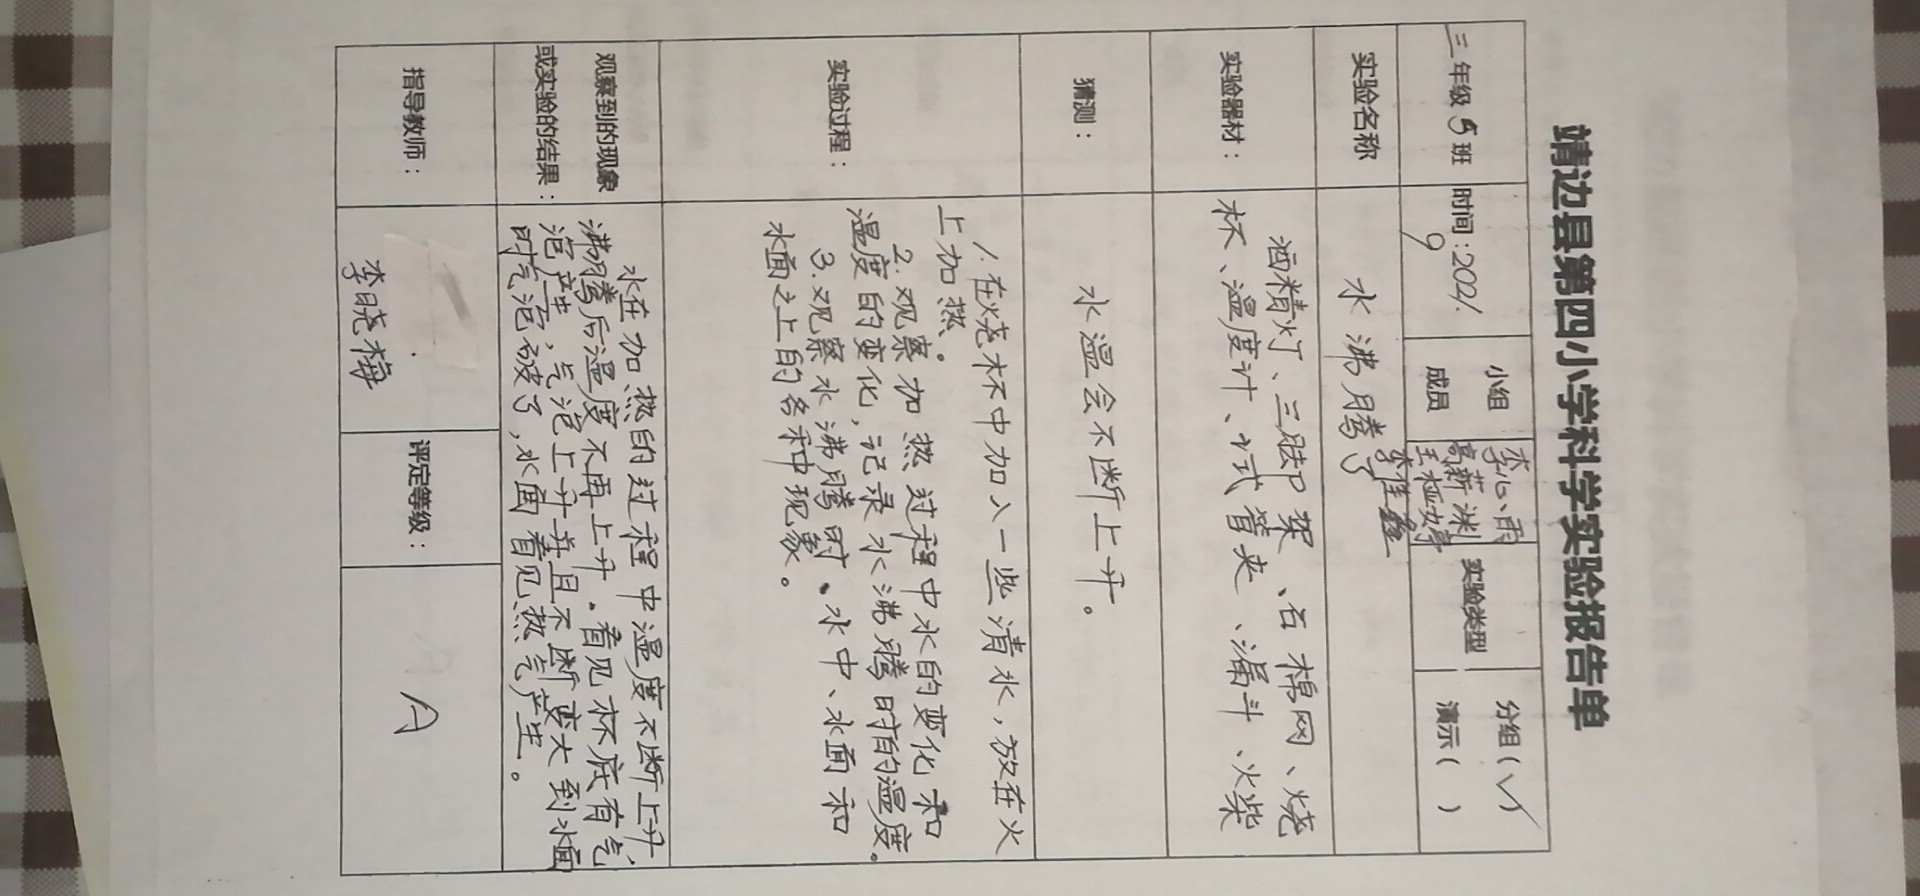 靖边县第四小学科学实验报告单
三年级 5 班
时间:2021
9
小组
成员
李心雨
高薪渊
王桠婷
李佳鑫
实验类型
分组(✓)
演示( )
实验名称
水沸腾了
实验器材:
酒精灯、三脚架、石棉网、烧
杯、温度计、试管夹、漏斗、火柴
猜测:
水温会不断上升。
实验过程:
1.在烧杯中加入一些清水,放在火
上加热。
2.观察加热过程中水的变化和
温度的变化,记录水沸腾时的温度。
3.观察水沸腾时.水中、水面和
水面之上的各种现象。
观察到的现象
或实验的结果:
水在加热的过程中温度不断上升,
沸腾后温度不再上升.看见杯底有气
泡产生,气泡上升并且不断变大到水面
时气泡破了,水面看见热气产生。
指导教师:
李晓梅
评定等级:
A